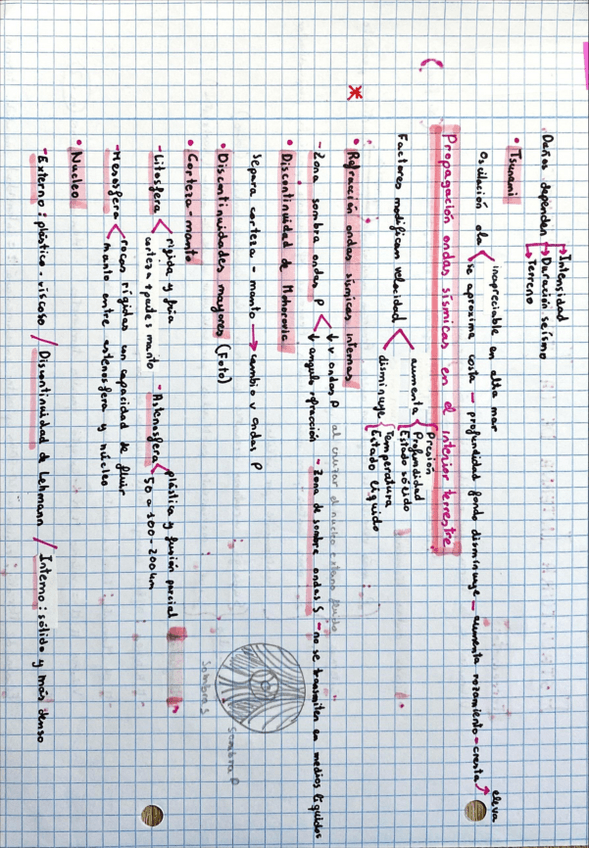 Daños dependen Intensidad
Duración seísmo
Terreno
• Tsunami
Oscilación ola inapreciable en alta mar
se aproxima costa — profundidad fondo disminuye — aumenta rozamiento — cresta eleva
Propagación ondas sísmicas en el interior terrestre
Factores modifican velocidad aumenta Presión
Profundidad
Estado sólido
disminuye Temperatura
Estado líquido
• Refracción ondas sísmicas internas
- Zona sombra ondas P ↓ v ondas P al cruzar el núcleo externo fluido
↓ angulo refracción - Zona de sombra ondas S - no se transmiten en medios líquidos
• Discontinuidad de Mohorovic
Separa corteza - manto → cambio v ondas P
• Discontinuidades mayores (Foto)
Sombra P
Sombra S
• Corteza-manto
- Litosfera rígida y fría
corteza + pades manto - Astenosfera plástica y fusión parcial
50 a 100-200km
- Mesosfera rocas rígidas un capacidad de fluir
manto entre astenosfera y núcleo
• Nucleo
- Externo: plástico-viscoso / Discontinuidad de Lehmann / Interno: sólido y más denso